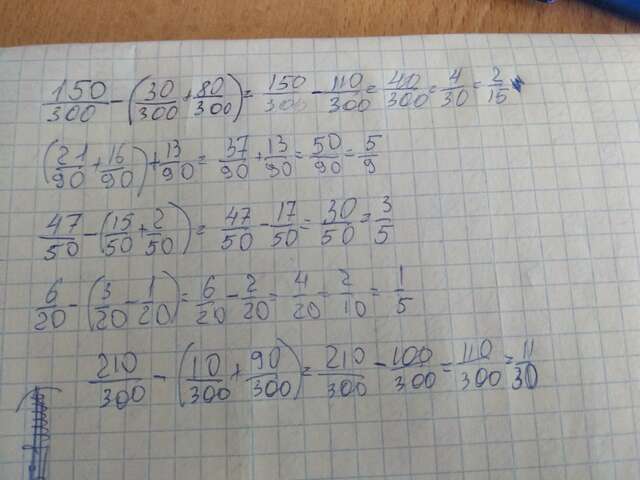 150/300 - (30/300 + 80/300) = 150/300 - 110/300 = 40/300 = 4/30 = 2/15
(21/90 + 16/90) + 13/90 = 37/90 + 13/90 = 50/90 = 5/9
47/50 - (15/50 + 2/50) = 47/50 - 17/50 = 30/50 = 3/5
6/20 - (3/20 - 1/20) = 6/20 - 2/20 = 4/20 = 2/10 = 1/5
210/300 - (10/300 + 90/300) = 210/300 - 100/300 = 110/300 = 11/30